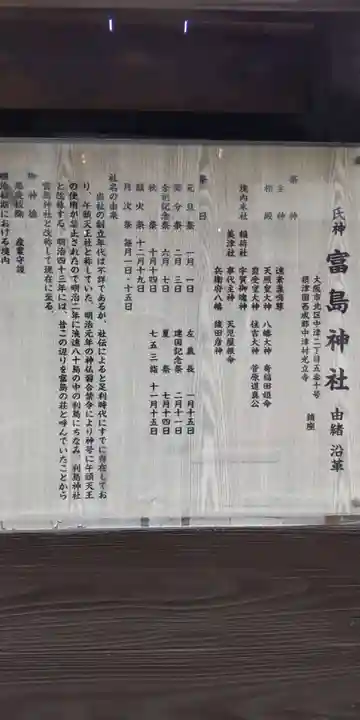 氏神 富島神社 由緒 沿革
大阪市北区中津二丁目五番十号 鎮座
摂津国西成郡中津村光立寺
祭神
主神 速素盞嗚尊
相殿 天照皇大神 八幡大神 寿福田領命
齋受皇大神 住吉大神 菅原道真公
境内末社 稲荷社 宇賀御魂神
美津社 事代主神 天児屋根命
兵衛府八幡 譲田彦神
祭日
元旦祭 一月一日 左義長 一月十五日
節分祭 二月三日 建国記念祭 二月十一日
六月七日 夏祭 七月十四日
秋祭 十月十四日 七五三詣 十一月十五日
鎮火祭 十二月十九日
月次祭 毎月一日・十五日
社名の由来
当社の創立年代は不詳であるが、社伝によると足利時代にすでに存在してお
り、午頭天王社と称していた。明治元年の神仏習合禁令により神号に午頭天王
の使用が禁止されたので明治二年に浪速八十島の中の利島にちなみ 利島神社
と改称する。明治四十三年には、昔この辺りを富島の荘と呼んでいたことから
富島神社と改称して現在に至る。
御神徳
悪疫祓除 産業守護
明治初期における境内